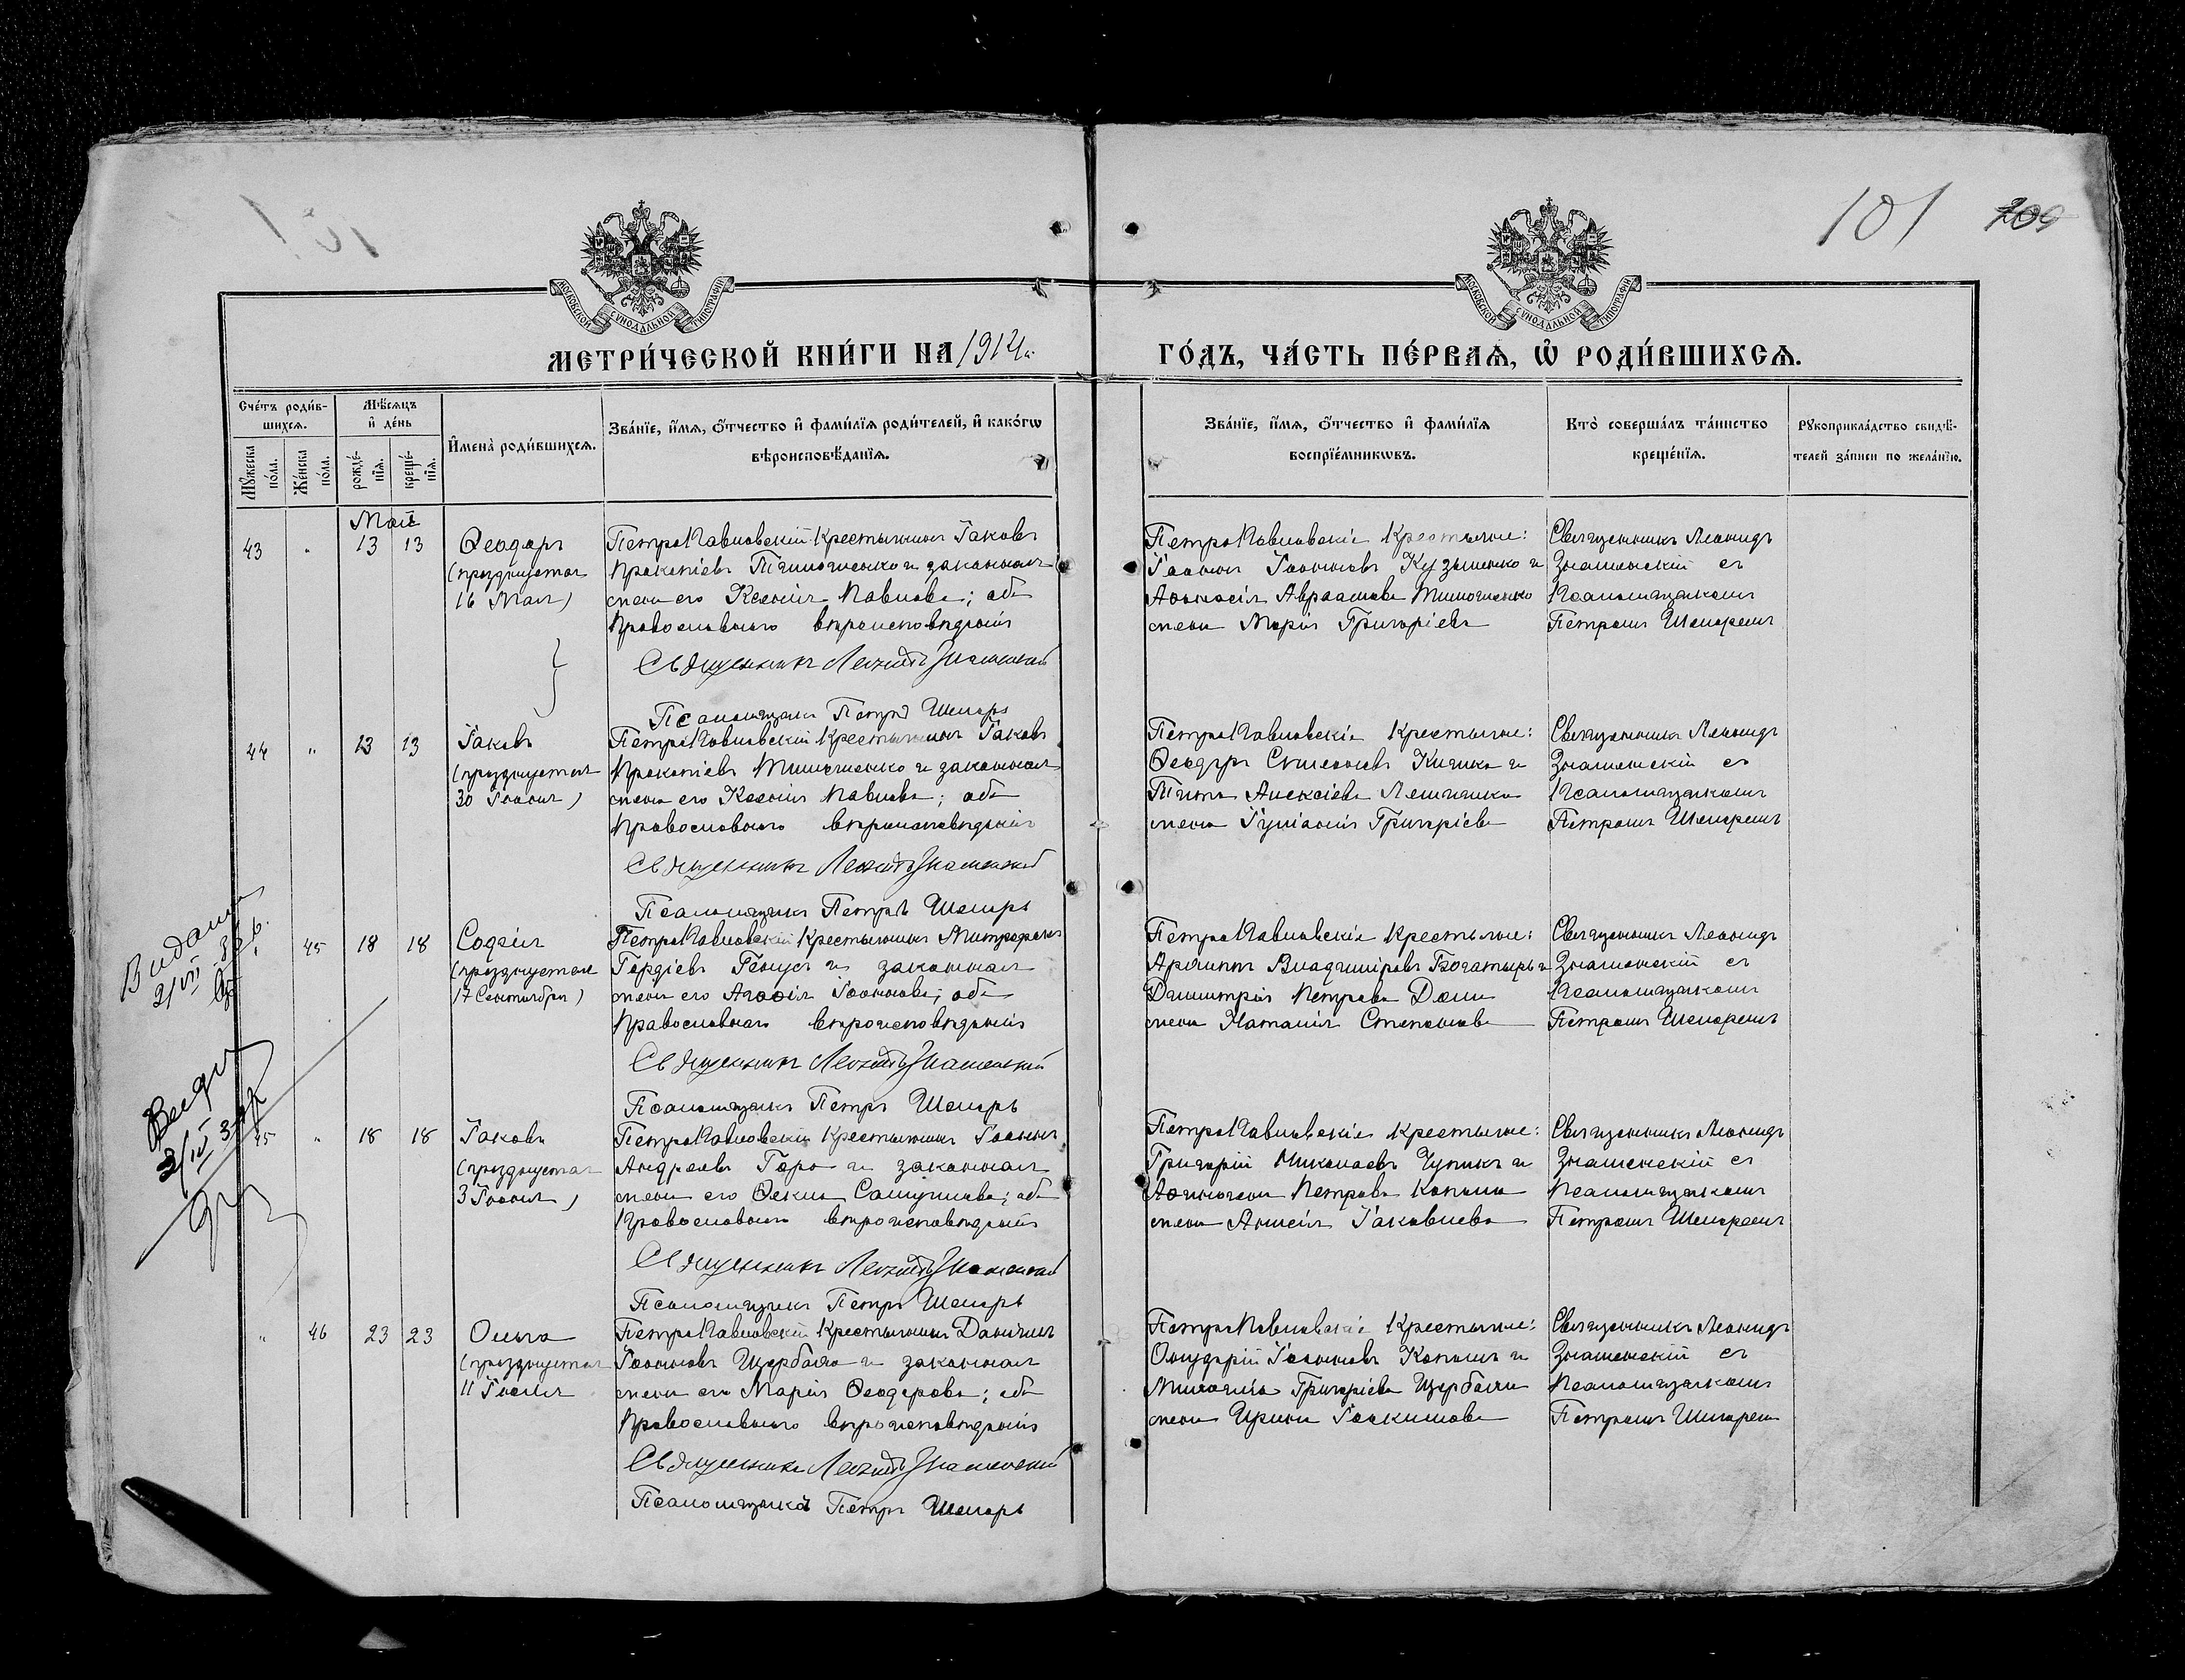 101 209
МОСКОВСКОЙ СѴНОДАЛЬНОЙ ТИПОГРАФІИ
МОСКОВСКОЙ СѴНОДАЛЬНОЙ ТИПОГРАФІИ
МЕТРИ́ЧЕСКОЙ КНИ́ГИ НА 1914 г.
ГО́ДЪ, ЧА́СТЬ ПЕ́РВАѦ, Ѡ҆ РОДИ́ВШИХСѦ.
Сче́тъ роди́в-
шихсѧ.
Мꙋ́жеска по́ла.
Же́нска по́ла.
Мѣ́сѧцъ и҆ де́нь
рожде́-нїѧ.
креще́-нїѧ.
И҆мена̀ роди́вшихсѧ.
Зва́нїе, и҆́мѧ, ѻ҆́тчество и҆ фами́лїѧ роди́телей, и҆ како́гѡ
вѣроисповѣ́данїѧ.
Зва́нїе, и҆́мѧ, ѻ҆́тчество и҆ фами́лїѧ
воспрїе́мникѡвъ.
Кто̀ соверша́лъ та́инство
креще́нїѧ.
Рꙋкоприкла́дство свидѣ́-
телей за́писи по жела́нїю.
Май
43 " 13 13 Ѳеодоръ
(празднуетъ
16 Мая)
ПетроПавловскій Крестьянинъ Іаковъ
Прокопіевъ Тимошенко и законная
жена его Ксенія Павлова; оба
Православнаго вѣроисповѣданія
Священникъ Леонидъ Знаменскій
Псаломщикъ Петръ Шепарь
ПетроПавловскіе Крестьяне:
Іоаннъ Іоанновъ Кузьменко и
Аѳанасія Авраамова Тимошенко
жена Марія Григоріева
Священникъ Леонидъ
Знаменскій съ
Псаломщикомъ
Петромъ Шепаремъ
44 " 13 13 Іаковъ
(празднуетъ
30 Іюня)
ПетроПавловскій Крестьянинъ Іаковъ
Прокопіевъ Тимошенко и законная
жена его Ксенія Павлова; оба
Православнаго вѣроисповѣданія
Священникъ Леонидъ Знаменскій
Псаломщикъ Петръ Шепарь
ПетроПавловскіе Крестьяне:
Ѳеодоръ Симеоновъ и
Тита Алексіева
жена Іуліанія Григоріева
Священникъ Леонидъ
Знаменскій съ
Псаломщикомъ
Петромъ Шепаремъ
Видано
" 45 18 18 Софія
(празднуетъ
17 Сентября)
ПетроПавловскій Крестьянинъ Митрофанъ
Гордіевъ и законная
жена его Агафія Іоаннова; оба
Православнаго вѣроисповѣданія
Священникъ Леонидъ Знаменскій
Псаломщикъ Петръ Шепарь
ПетроПавловскіе Крестьяне:
Архипъ Владиміровъ Богатырь и
Димитрія Петрова
жена Наталія Стефанова
Священникъ Леонидъ
Знаменскій съ
Псаломщикомъ
Петромъ Шепаремъ
45 " 18 18 Іаковъ
(празднуетъ
30 Іюня)
ПетроПавловскій Крестьянинъ Іоаннъ
Андреевъ и законная
жена его Ѳекла Самуилова; оба
Православнаго вѣроисповѣданія
Священникъ Леонидъ Знаменскій
Псаломщикъ Петръ Шепарь
ПетроПавловскіе Крестьяне:
Григорій Николаевъ и
Петрова
жена Анисія Іаковлева
Священникъ Леонидъ
Знаменскій съ
Псаломщикомъ
Петромъ Шепаремъ
" 46 23 23 Ольга
(празднуетъ
11 Іюля
ПетроПавловскій Крестьянинъ Даніилъ
Іоанновъ Щербань и законная
жена его Марія Ѳеодорова; оба
Православнаго вѣроисповѣданія
Священникъ Леонидъ Знаменскій
Псаломщикъ Петръ Шепарь
ПетроПавловскіе Крестьяне:
Онуфрій Іоанновъ и
Михаила Григоріева Щербаня
жена Ирина Іоакимова
Священникъ Леонидъ
Знаменскій съ
Псаломщикомъ
Петромъ Шепаремъ